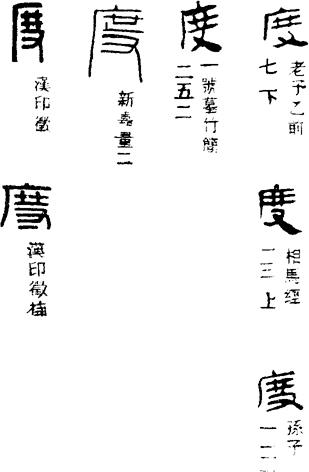 度
老子乙前
七下
度
相馬經
一三上
度
孫子
度
一號墓竹簡
二五二
度
新嘉量二
度
漢印徵
度
漢印徵補